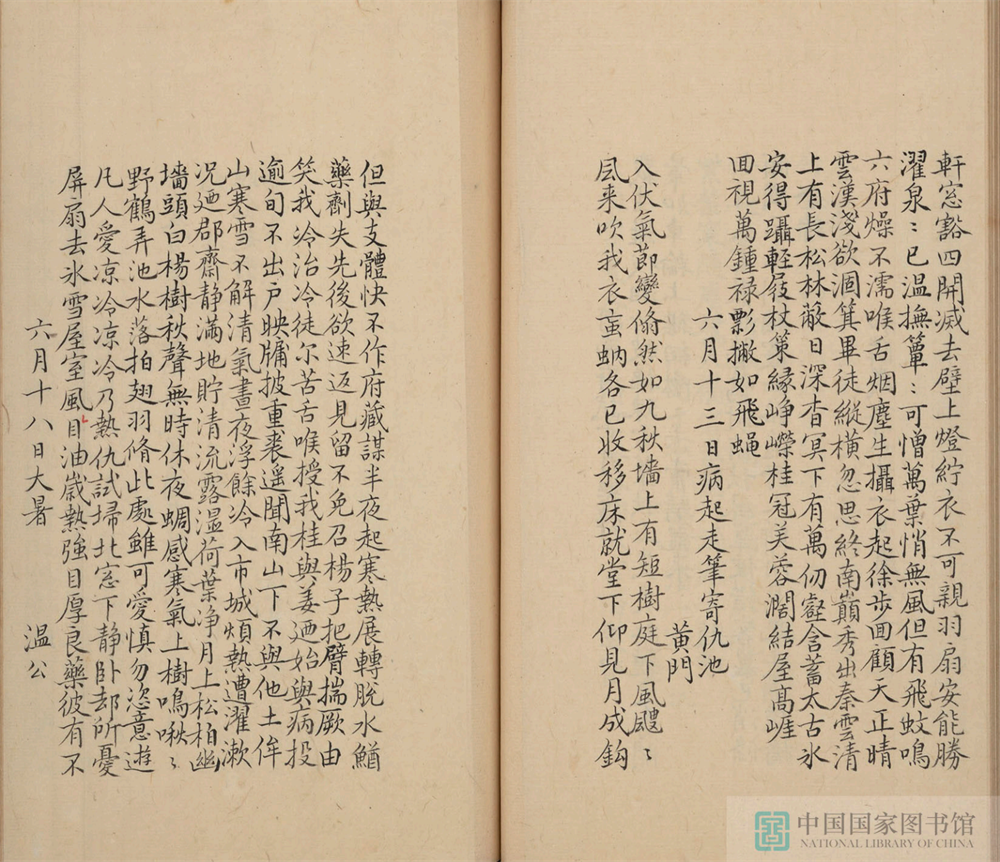 軒窓豁四開滅去壁上燈紵衣不可親羽扇安能勝
濯泉〻已温撫簟〻可憎萬葉悄無風但有飛蚊鳴
六府燥不濡喉舌烟塵生攝衣起徐步回顧天正晴
雲漢淺欲涸箕畢徒縱橫忽思終南巔秀出秦雲清
上有長松林蔽日深杳冥下有萬仞壑含蓄太古氷
安得躡輕屐杖策緣崢嶸桂冠芙蓉濶結屋髙崕
回視萬鍾祿剽撇如飛蝇
六月十三日病起走筆寄仇池
黄門
入伏氣莭變翛然如九秋墻上有短樹庭下風颼〻
風来吹我衣䖟蚋各已收移床就堂下仰見月成鈎
但與支體快不作府藏謀半夜起寒熱展轉脫水鰌
藥劑失先後欲速返見留不免召楊子把臂揣厥由
笑我冷治冷徒尔苦舌喉授我桂與姜廼始與病投
逾旬不出戸映牖披重裘遥聞南山下不與他土侔
山寒雪不解清氣晝夜浮餘冷入市城煩熱遭濯漱
况廼郡齋静滿地貯清流露濕荷葉淨月上松柏幽
墻頭白楊樹秋聲無時休夜蜩感寒氣上樹鳴啾〻
野鶴弄池水落拍翅羽脩此處雖可愛慎勿恣意遊
凡人愛凉冷凉冷乃熱仇試埽北窓下静卧却所憂
屏扇去氷雪屋室風目油嵗熱強目厚良藥彼有不
六月十八日大暑
温公
中国国家图书馆
NATIONAL LIBRARY OF CHINA